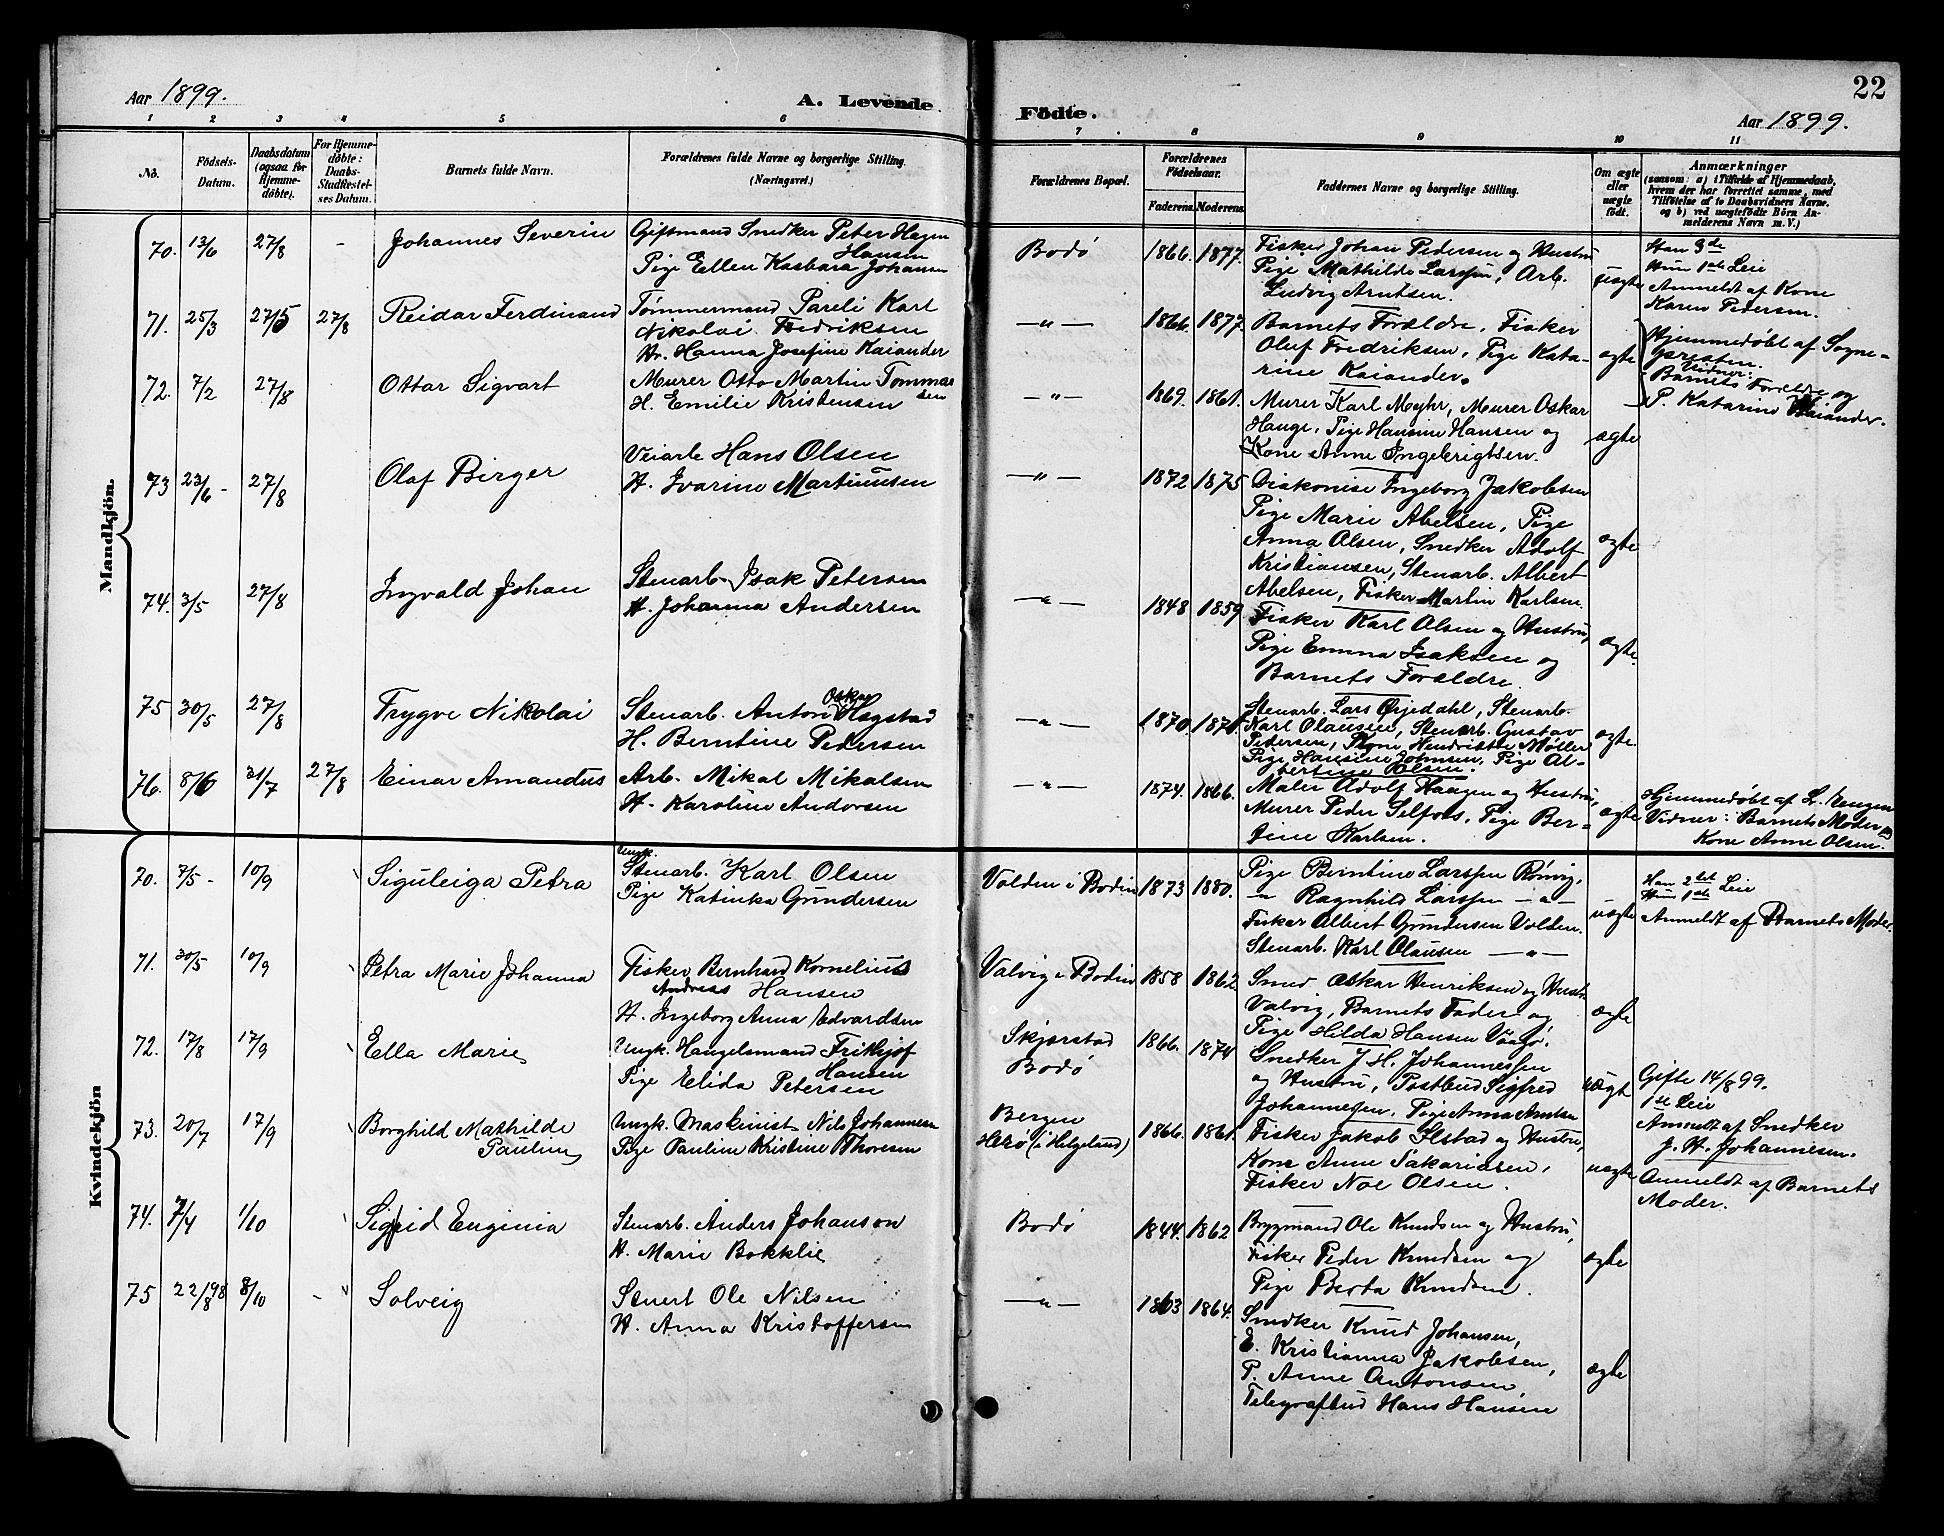 Aar 1899.
A. Levende
Födte.
22
Aar 1899.
1 2 3 4 5 6 7 8 9 10 11
No.
Födsels-
Datum.
Daabsdatum
(ogsaa for
Hjemme-
døbte).
For Hjemme-
døbte:
Daabs-
Stadfæstel-
ses Datum.
Barnets fulde Navn.
Forældrenes fulde Navne og borgerlige Stilling.
(Næringsvei.)
Forældrenes Bopæl.
Forældrenes
Födselsaar.
Faderens. Moderens.
Faddernes Navne og borgerlige Stilling.
Om ægte
eller
uægte
födt.
Anmærkninger
(saasom: a) i Tilfælde af Hjemmedaab,
hvem der har forrettet samme, med
Tilföielse af to Daabsvidners Navne.
og b) ved uægtefödte Börn An-
melderens Navn m. V.)
Mandkjön.
70. 13/6 27/8 - Johannes Severin
Giftmand Snedker Peter Hagen
Hansen
Pige Ellen Kasbara Johansen
Bodø 1866. 1877.
Fisker Johan Pedersen og Hustru
Pige Mathilde Larssen, Arb.
Ludvig Arntsen.
uægte
Han 3de
Hun 1ste Leie
Anmeldt af Kone
Karen Pedersen.
71. 25/3 27/5 27/8 Reidar Ferdinand
Tømmermand Pareli Karl
Nikolai Fredriksen
H. Hanna Josefine Kaiander
—"— 1866. 1877.
Barnets Forældre, Fisker
Oluf Fredriksen, Pige Kata-
rine Kaiander.
ægte
Hjemmedøbt af Sogne-
præsten.
Vidner:
Barnets Forældre og
P. Katarine Kaiander.
72. 7/2 27/8 Ottar Sigvart
Murer Otto Martin Tommas
sen
H. Emilie Kristensen
—"— 1869. 1861.
Murer Karl Myhr, Murer Oskar
Hauge, Pige Hansine Hansen og
Kone Anne Ingebrigtsen.
ægte
73 23/6 - 27/8 Olaf Birger
Veiarb Hans Olsen
H. Ivarine Martinusen
—"— 1872 1875
Diakonise Ingeborg Jakobsen
Pige Marie Abelsen, Pige
Anna Olsen, Snedker Adolf
Kristiansen, Stenarb. Albert
Abelsen, Fisker Martin Karlsen.
ægte
74. 3/5 27/8 Ingvald Johan
Stenarb. Isak Petersen
H. Johanna Andersen
—"— 1848 1859
Fisker Karl Olsen og Hustru,
Pige Emma Isaksen og
Barnets Forældre.
ægte.
75 30/5 27/8 Trygve Nikolai
Oskar
Stenarb. Anton Hagstad
H. Berntine Pedersen
—"— 1870. 1871.
Stenarb. Lars Ørjedahl, Stenarb.
Karl Olausen, Stenarb. Gustav
Pedersen, Kone Hendrikke Møller
Pige Hansine Johnsen, Pige Al-
bertine Olsen.
ægte.
76. 8/6 31/7 27/8 Einar Amandus
Arb. Mikal Mikalsen
H. Karoline Andorsen
—"— 1874. 1866.
Maler Adolf Haagen og Hustru,
Murer Peder Selfors, Pige Ber-
tine Karlsen.
ægte
Hjemmedøbt af L. Rengen
Vidner: Barnets Moder og
Kone Anne Olsen.
Kvindekjön
70. 7/5 - 10/9 Siguleiga Petra
Ungk.
Stenarb. Karl Olsen
Pige Katinka Gundersen
Volden i Bodin 1873 1880.
Pige Berntine Larssen Rønvig,
—"— Ragnhild Larssen —"—
Fisker Albert Gundersen Volden.
Stenarb. Karl Olausen —"—
uægte
Han 2det
Hun 1ste Leie
Anmeldt af Barnets Moder.
71. 30/5 10/9 Petra Marie Johanna
Fisker Bernhard Kornelius
Andreas Hansen
H. Ingeborg Anna Edvardsen
Valvig i Bodin 1858 1862.
Smed Oskar Henriksen og Hustru
Valvig, Barnets Fader og
Pige Hilda Hansen Vaagø.
ægte
72. 17/8 17/9 Ella Marie
Ungk. Handelsmand Frithjof
Hansen
Pige Elida Petersen
Skjærstad
Bodø
1866. 1874
Snedker J. H. Johannessen
og Hustru, Postbud Sigfred
Johannesen, Pige Anna Arntsen
uægt
Gifte 14/8 99.
1ste Leie
Anmeldt af Snedker
J. H. Johannesen.
73. 20/7 17/9 Borghild Mathilde
Pauline
Ungk. Maskinist Nils Johannesen
Pige Pauline Kristine Thoresen
Bergen
Herø (i Helgeland)
1866. 1861.
Fisker Jakob Ilstad og Hustru,
Kone Anne Sakariasen,
Fisker Noe Olsen.
uægte
Anmeldt af Barnets
Moder.
74. 7/4 1/10 Sigrid Euginia
Stenarb. Anders Johanson
H. Marie Bokklie
Bodø 1844. 1862
Brygmand Ole Knudsen og Hustru,
Fisker Peder Knudsen og
Pige Berta Knudsen.
ægte
75 22/8 98 8/10 - Solveig
Stuert Ole Nilsen
H. Anna Kristoffersen
—"— 1863 1864.
Snedker Knud Johansen,
E. Kristianna Jakobsen,
P. Anne Antonsen,
Telegrafbud Hans Hansen
ægte